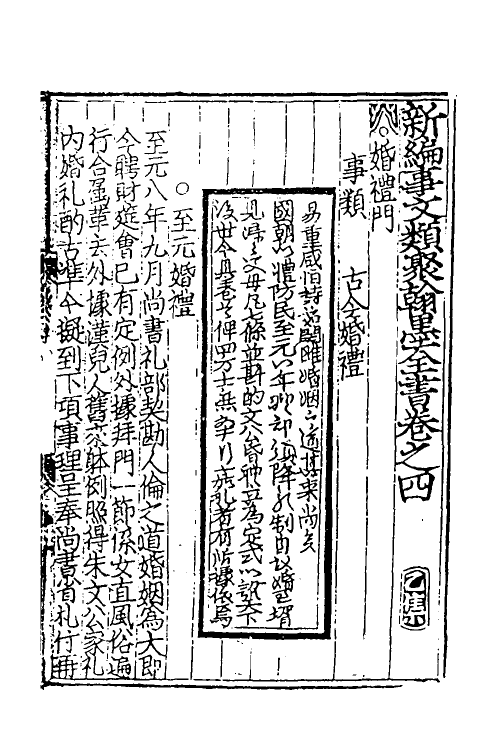 新編事文類聚翰墨全書卷之四
乙集
婚禮門
事類 古今婚禮
易重咸恒詩首關雎婚姻之道其來尚矣
國朝以禮防民至元八年 部 降 制自議婚至壻
見婦之父母凡七條並斟酌文公昏禮立為定式以 天下
後世今具著之俾四方士 行 禮者有所據依焉
○至元婚禮
至元八年九月尚書礼部契勘人倫之道婚姻為大即
今聘財筵會已有定例外據拜門一節係女直風俗遍
行合屬革去外據漢兒人舊來体例照得朱文公家礼
內婚礼酌古準今擬到下項事理呈奉尚書省札付再